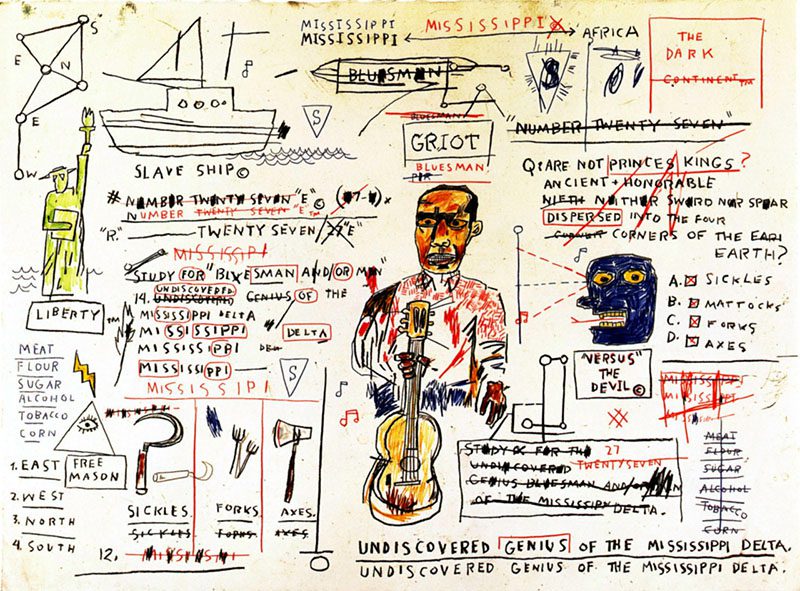 S
E
N
E
W
MISSISSIPPI MISSISSIPPI'S
MISSISSIPPI
AFRICA
THE
DARK
CONTINENT™
BLUESMAN
S
S
BLUESMAN
GRIOT
BLUESMAN
"NUMBER TWENTY SEVEN"
SLAVE SHIP©
# NUMBER TWENTY SEVEN "E"©
NUMBER TWENTY SEVEN "E™
"R." TWENTY SEVEN
MISSISSIPPI
STUDY FOR "BLUESMAN AND/OR MAN"
UNDISCOVERED
14. UNDISCOVERED GENIUS OF THE
MISSISSIPPI DELTA
MISSISSIPPI DELTA
MISSISSIPPI DEL
MISSISSIPPI
MISSISSIPPI
S
LIBERTY™
MEAT
FLOUR
SUGAR
ALCOHOL
TOBACCO
CORN
FREE
MASON
1. EAST
2. WEST
3. NORTH
4. SOUTH
SICKLES.
SICKLES
FORKS.
FORKS
AXES.
AXES
12.
Q: ARE NOT PRINCES KINGS?
ANCIENT + HONORABLE
NIETH NEITHER SWORD NOR SPEAR
DISPERSED INTO THE FOUR
CORNER CORNERS OF THE EARI
EARTH?
A. SICKLES
B. MATTOCKS
C. FORKS
D. AXES
"VERSUS"
THE
DEVIL©
MISSISSIPPI
MISSISSIPPI
MISSISSIPPI
MEAT
FLOUR
SUGAR
ALCOHOL
TOBACCO
CORN
STUDY FOR THE 27
UNDISCOVERED TWENTYSEVEN
GENIUS BLUESMAN AND/OR
OF THE MISSISSIPPI DELTA.
UNDISCOVERED GENIUS OF THE MISSISSIPPI DELTA.
UNDISCOVERED GENIUS OF THE MISSISSIPPI DELTA.